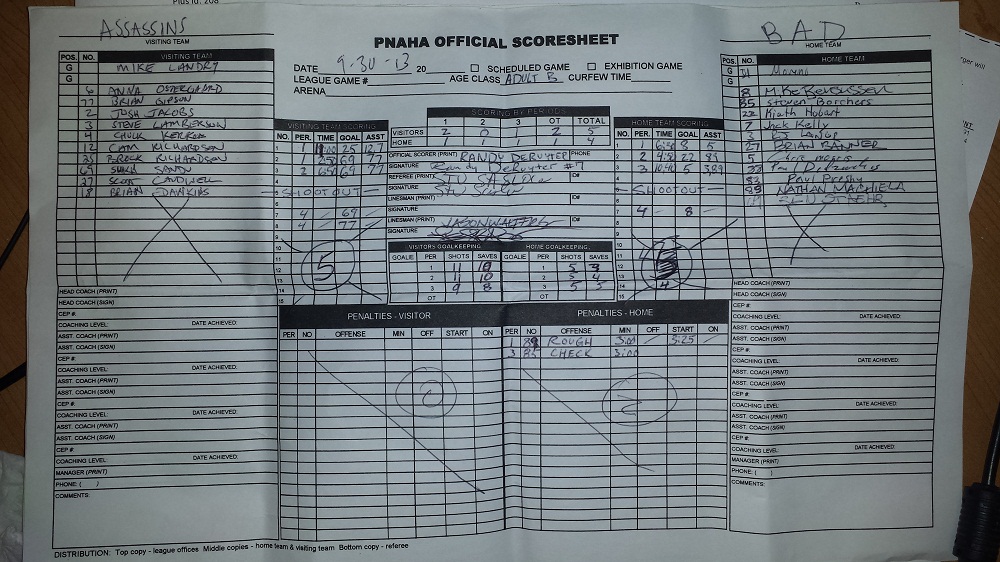 ASSASSINS
VISITING TEAM
BAD
HOME TEAM
PNAHA OFFICIAL SCORESHEET
DATE 9-30-13 20 SCHEDULED GAME EXHIBITION GAME
LEAGUE GAME # AGE CLASS ADULT B CURFEW TIME
ARENA
POS. NO. VISITING TEAM
G MIKE LANDRY
G
6 ANNA OSTERGAARD
77 BRIAN GIPSON
2 JOSH JACOBS
3 STEVE LAMBERSON
4 CHUCK KERKOX
12 CAM RICHARDSON
25 BROCK RICHARDSON
69 SANDY
27 SCOTT CAUDWELL
18 BRIAN EDAWKINS
VISITING TEAM SCORING
NO. PER. TIME GOAL ASST
1 1 25 12,7
2 1 250 69 77
3 2 650 69 77
5 SHOOTOUT
7 4 - 69 -
8 4 - 77 -
5
SCORING BY PERIODS
1 2 3 OT TOTAL
VISITORS 2 0 1 2 5
HOME 1 1 1 1 4
OFFICIAL SCORER (PRINT) RANDY DERUYTER PHONE
SIGNATURE Randy DeRuyter #7
REFEREE (PRINT) ID#
SIGNATURE
LINESMAN (PRINT) ID#
SIGNATURE
LINESMAN (PRINT) JASON WALTERS ID#
SIGNATURE
VISITORS GOALKEEPING HOME GOALKEEPING
GOALIE PER SHOTS SAVES GOALIE PER SHOTS SAVES
1 11 10 1 5 3
2 11 10 2 5 4
3 9 8 3 5 5
OT OT
HOME TEAM SCORING
NO. PER. TIME GOAL ASST
1 1 6:50 8 5
2 2 4:52 22 85
3 3 10:40 5 3,89
SHOOTOUT
7 4 - 8 -
4
POS. NO. HOME TEAM
G
G
8
85 Steven Borchers
22 Kieth Hobart
7 Jack Kelly
3
27 BRIAN BANNER
5
33
82 Paul Presby
89 NATHAN MACHIELA
PENALTIES - VISITOR
PER NO OFFENSE MIN OFF START ON
0
PENALTIES - HOME
PER NO OFFENSE MIN OFF START ON
1 89 ROUGH 3:00 - 3:25 -
3 85 CHECK 3:00
2
HEAD COACH (PRINT)
HEAD COACH (SIGN)
CEP #:
COACHING LEVEL: DATE ACHIEVED:
ASST. COACH (PRINT)
ASST. COACH (SIGN)
CEP #:
COACHING LEVEL: DATE ACHIEVED:
ASST. COACH (PRINT)
ASST. COACH (SIGN)
CEP #:
COACHING LEVEL: DATE ACHIEVED:
ASST. COACH (PRINT)
ASST. COACH (SIGN)
CEP #:
COACHING LEVEL: DATE ACHIEVED:
MANAGER (PRINT)
PHONE: ( )
COMMENTS:
HEAD COACH (PRINT)
HEAD COACH (SIGN)
CEP #:
COACHING LEVEL: DATE ACHIEVED:
ASST. COACH (PRINT)
ASST. COACH (SIGN)
CEP #:
COACHING LEVEL: DATE ACHIEVED:
ASST. COACH (PRINT)
ASST. COACH (SIGN)
CEP #:
COACHING LEVEL: DATE ACHIEVED:
ASST. COACH (PRINT)
ASST. COACH (SIGN)
CEP #:
COACHING LEVEL: DATE ACHIEVED:
MANAGER (PRINT)
PHONE: ( )
COMMENTS:
DISTRIBUTION: Top copy - league offices Middle copies - home team & visiting team Bottom copy - referee